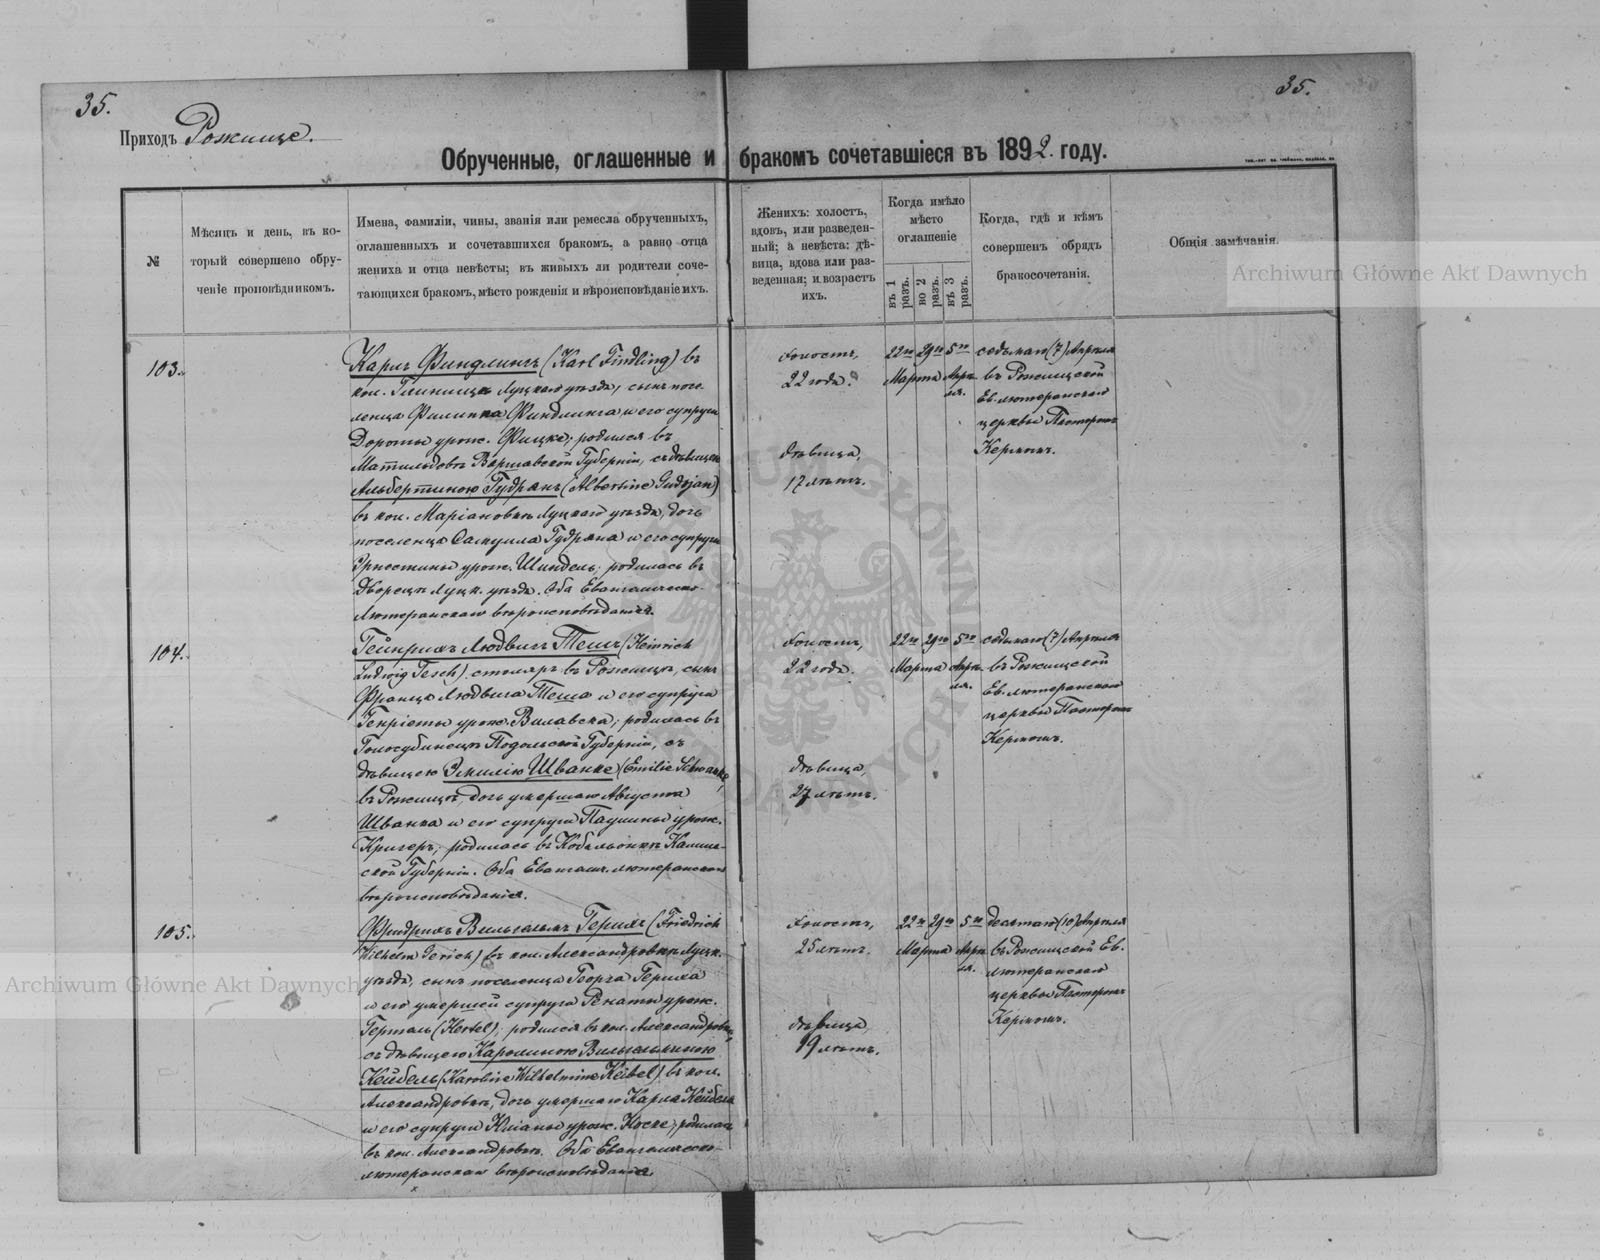 35.
35.
Приходъ Рожище.
Обрученные, оглашенные и бракомъ сочетавшіеся въ 1892. году.
№
Мѣсяцъ и день, въ ко-
торый совершено обру-
ченіе проповѣдникомъ.
Имена, фамиліи, чины, званія или ремесла обрученныхъ,
оглашенныхъ и сочетавшихся бракомъ, а равно отца
жениха и отца невѣсты; въ живыхъ ли родители соче-
тающихся бракомъ, мѣсто рожденія и вѣроисповѣданіе ихъ.
Женихъ: холостъ,
вдовъ, или разведен-
ный; а невѣста: дѣ-
вица, вдова или раз-
веденная; и возрастъ
ихъ.
Когда имѣло
мѣсто
оглашеніе
въ 1 разъ.
во 2 разъ.
въ 3 разъ.
Когда, гдѣ и кѣмъ
совершенъ обрядъ
бракосочетанія.
Общія замѣчанія.
103.
Карлъ Финдлингъ (Karl Findling) въ
кол. Глинищѣ Луцкаго уѣзда, сынъ посе-
ленца Филиппа Финдлинга и его супруги
Дороты урож. Фицке; родился въ
Матильдовѣ Варшавской Губерніи, съ дѣвицею
Альбертиною Гудрянъ (Albertine Gudrjan)
въ кол. Маріановкѣ Луцкаго уѣзда, дочь
поселенца Самуила Гудряна и его супруги
Эрнестины урож. Шиндель; родилась въ
Дворецъ Луцк. уѣзда. Оба Евангелическо-
Лютеранскаго вѣроисповѣданія.
холостъ,
22 года.
дѣвица,
17 лѣтъ.
22го 29го 5го
Марта Апрѣ-
ля.
седьмаго (7) Апрѣля
въ Рожищской
Ев. лютеранской
церкви Пасторомъ
Кермомъ.
104.
Гейнрихъ Людвигъ Тешъ (Heinrich
Ludwig Tesch) столяръ въ Рожищѣ, сынъ
Франца Людвига Теша и его супруги
Генріеты урож. Вилавска; родился въ
Подольской Губерніи, съ
дѣвицею Эмиліею Шванке (Emilie Schwanke)
въ Рожищѣ, дочь умершаго Августа
Шванка и его супруги Паулины урож.
Кригеръ; родилась въ Кобыльонкѣ Калиш-
ской Губерніи. Оба Евангелич. лютеранскаго
вѣроисповѣданія.
холостъ,
22 года.
дѣвица,
27 лѣтъ.
22го 29го 5го
Марта Апрѣ-
ля.
седьмаго (7) Апрѣля
въ Рожищской
Ев. лютеранской
церкви Пасторомъ
Кермомъ.
105.
Фридрихъ Вильгельмъ Герихъ (Friedrich
Wilhelm Gerich) въ кол. Александровкѣ Луцк.
уѣзда, сынъ поселенца Георга Гериха
и его умершей супруги Ренаты урож.
Гертель (Hertel); родился въ кол. Александровкѣ,
съ дѣвицею Каролиною Вильгельминою
Кейбель (Karoline Wilhelmine Keibel) въ кол.
Александровкѣ, дочь умершаго Карла Кейбеля
и его супруги Юліаны урож. Носке; родилась
въ кол. Александровкѣ. Оба Евангелическо-
лютеранскаго вѣроисповѣданія.
холостъ,
25 лѣтъ.
дѣвица,
19 лѣтъ.
22го 29го 5го
Марта Апрѣ-
ля.
десятаго (10) Апрѣля
въ Рожищской Ев.
лютеранской
церкви Пасторомъ
Кермомъ.
Archiwum Główne Akt Dawnych
Archiwum Główne Akt Dawnych